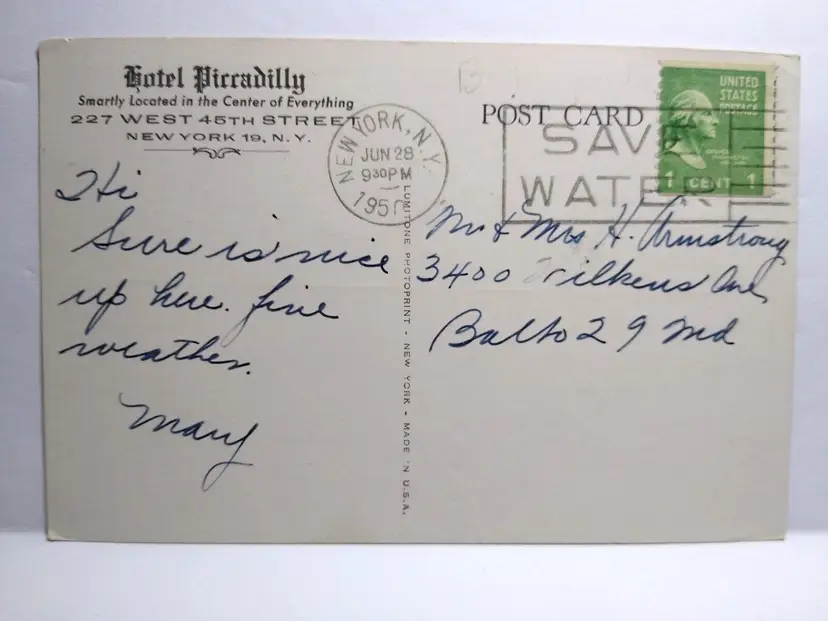 Hotel Piccadilly
Smartly Located in the Center of Everything
227 WEST 45TH STREET
NEW YORK 19, N.Y.
Hi
Sure is nice
up here. fine
weather.
Mary
NEW YORK, N.Y.
JUN 28
9 30 PM
1950
LUMITONE PHOTOPRINT - NEW YORK - MADE IN U.S.A.
POST CARD
SAVE
WATER
UNITED
STATES
POSTAGE
1 CENT 1
Mr & Mrs H. Armstrong
3400 Wilkens Ave,
Balto 29 Md